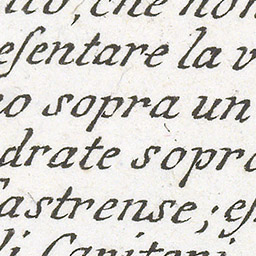 , che non
eſentare la v
o sopra un
drate sopra
aſtrense; eſ
li Capitani